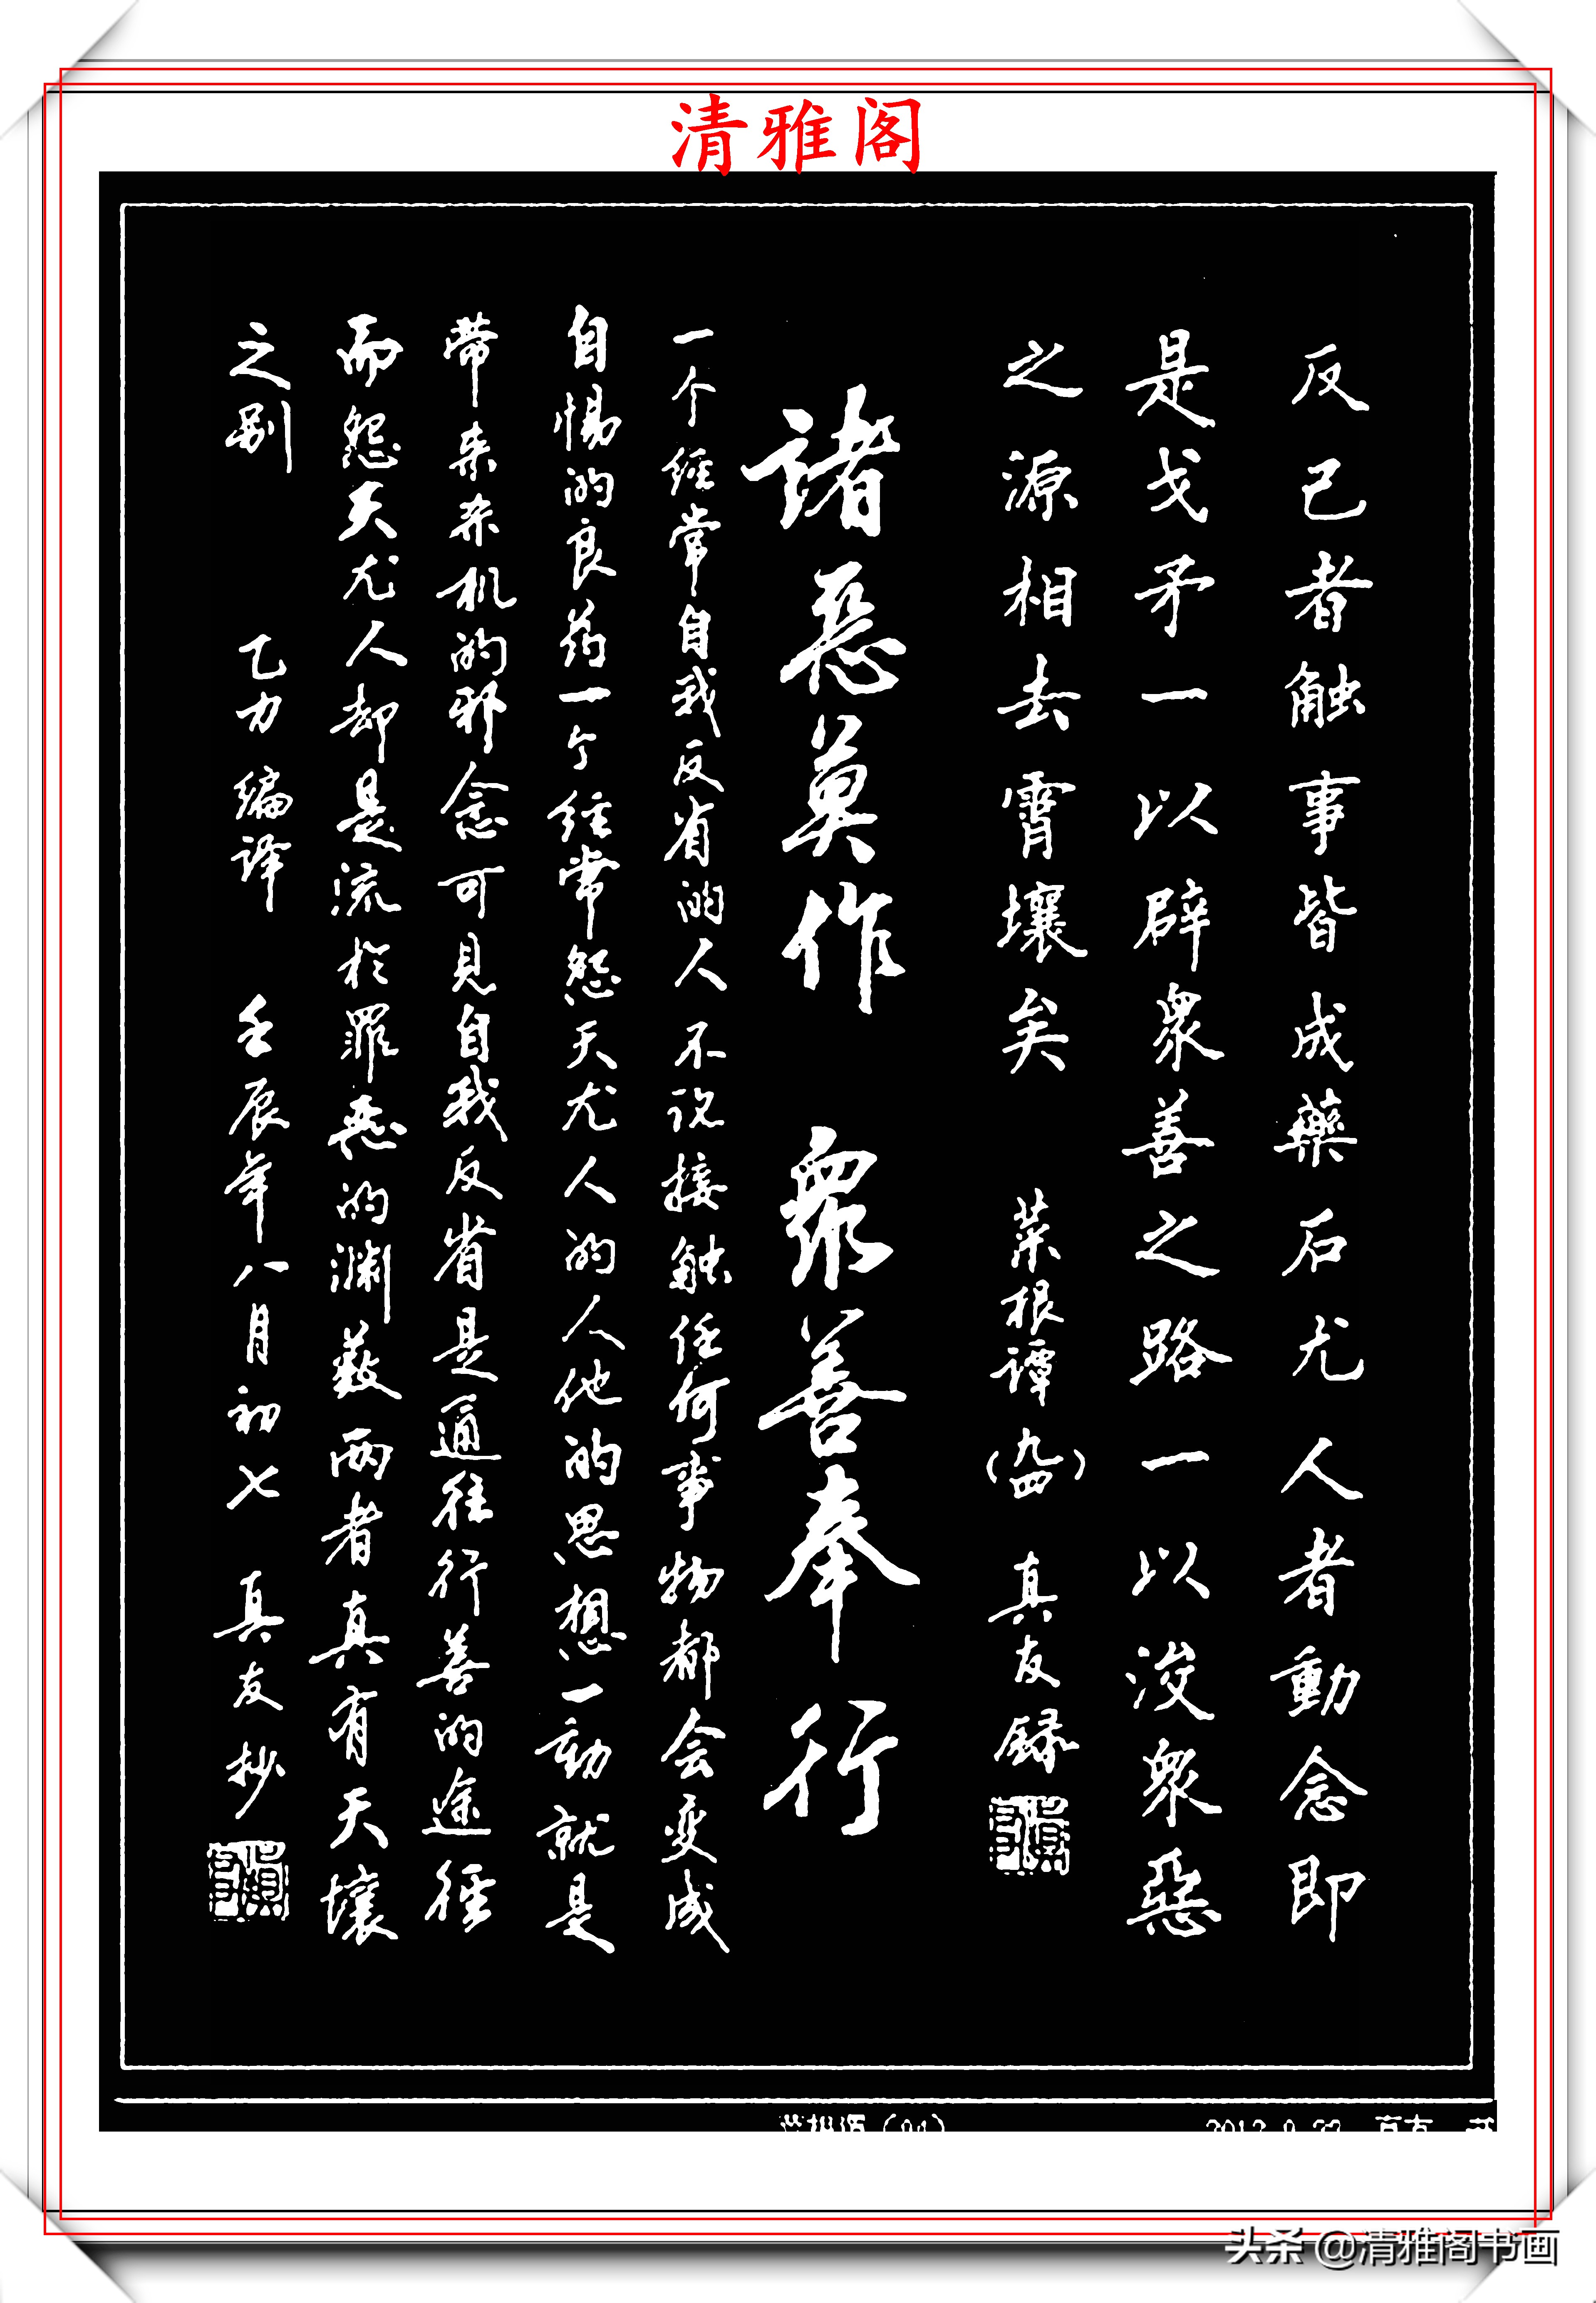 清雅阁
反己者触事皆成藥石尤人者動念即
是戈矛一以辟衆善之路一以浚衆惡
之源相去霄壤矣 菜根谭(九四) 真友録
諸惡莫作 衆善奉行
一个经常自我反省的人不说接触任何事物都会变成
自惕的良药一个经常怨天尤人的人他的思想一动就是
带来杀机的邪念可見自我反省是通往行善的途径
而怨天尤人却是流於罪恶的渊薮两者真有天壤
之别 乙力编译 壬辰年八月初七 真友抄
头条 @清雅阁书画